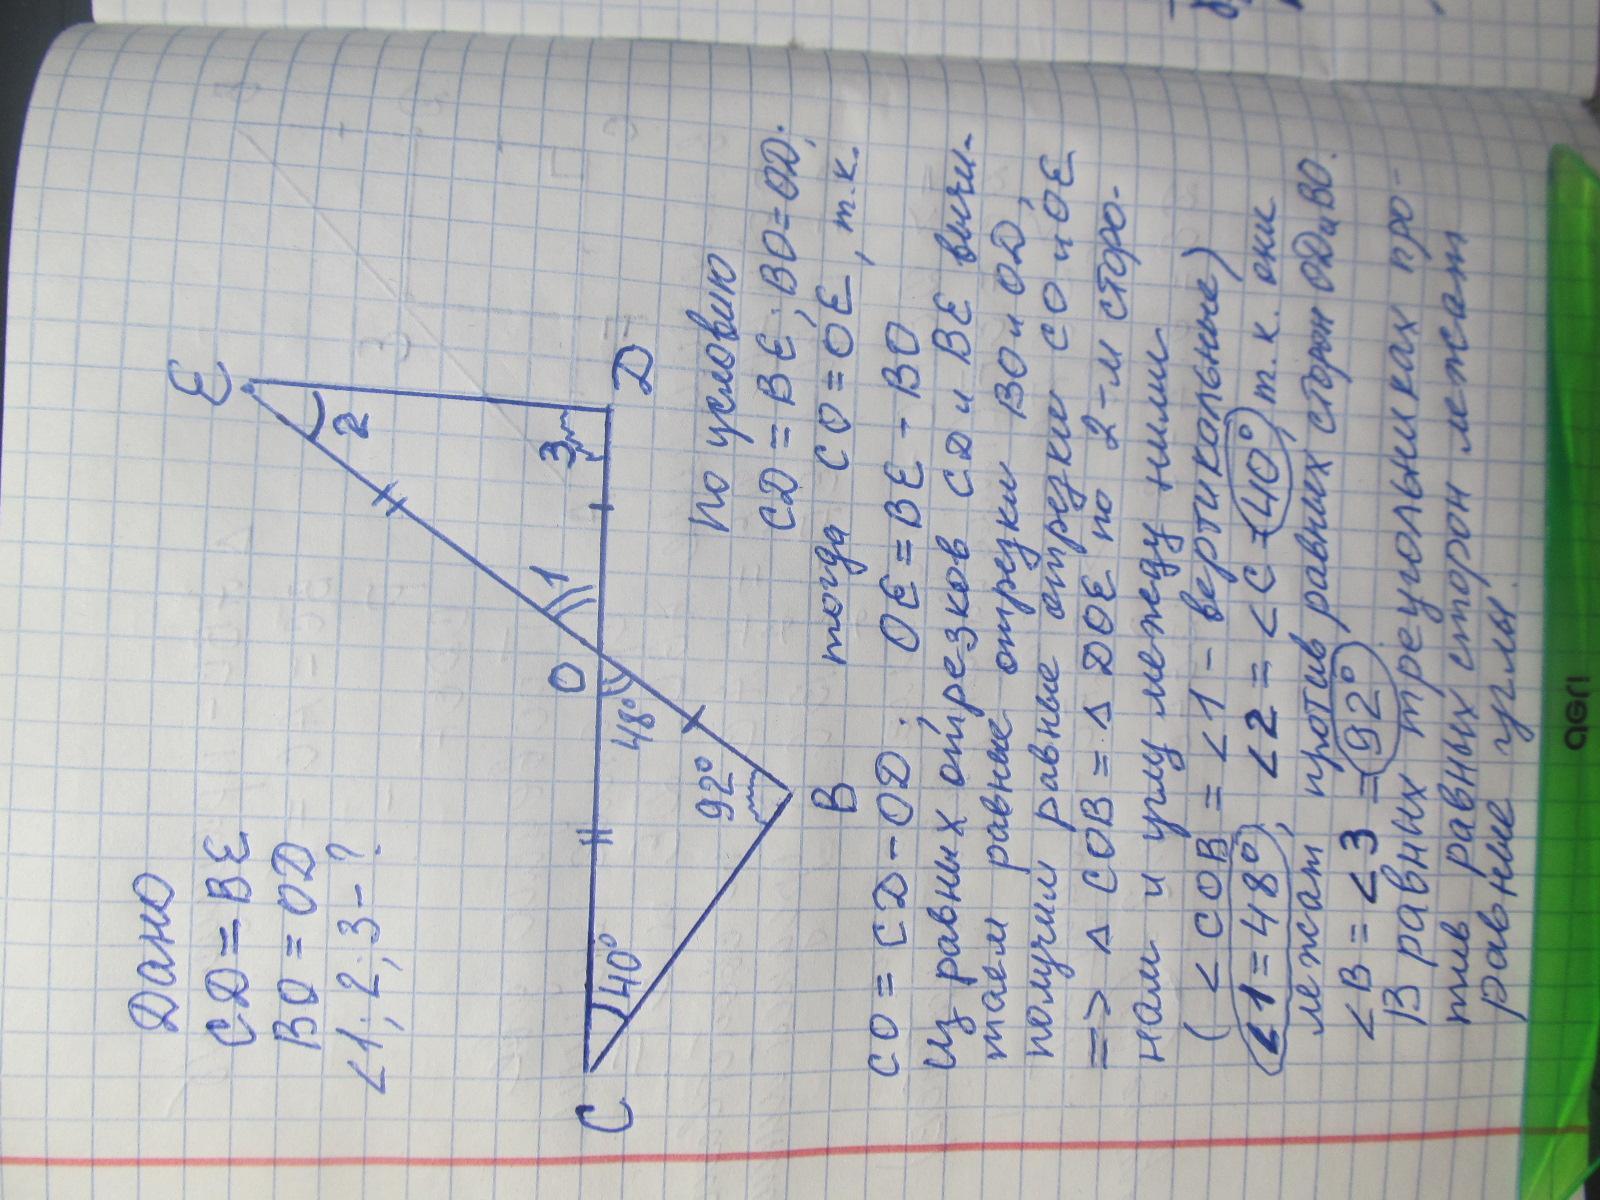 Дано
CD = BE
BO = OD
<1; 2; 3 - ?
E
2
3
D
1
O
48°
92°
B
40°
C
По условию
CD = BE; BO = OD;
тогда CO = OE, т.к.
CO = CD - OD; OE = BE - BO
Из равных отрезков CD и BE вычи-
таем равные отрезки BO и OD,
получим равные отрезки CO и OE
=> Δ COB = Δ DOE по 2-м сторо-
нам и углу между ними
( < COB = < 1 - вертикольные)
<1 = 48°; <2 = <C = 40°, т.к. они
лежат против равных сторон OD и BO.
<B = <3 = 92°
В равных треугольниках про-
тив равных сторон лежат
равные углы.
agri